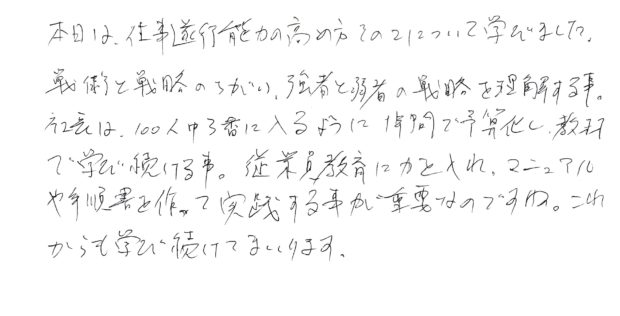 本日は、仕事遂行能力の高め方その2について学びました。
戦術と戦略のちがい、強者と弱者の戦略を理解する事。
社長は、100人中3番に入るように 時間で予算化し、教科
で学び続ける事。従業員教育に力を入れ、マニュアル
や手順書を作って実践する事が重要なのですね。これ
からも学び続けてまいります。